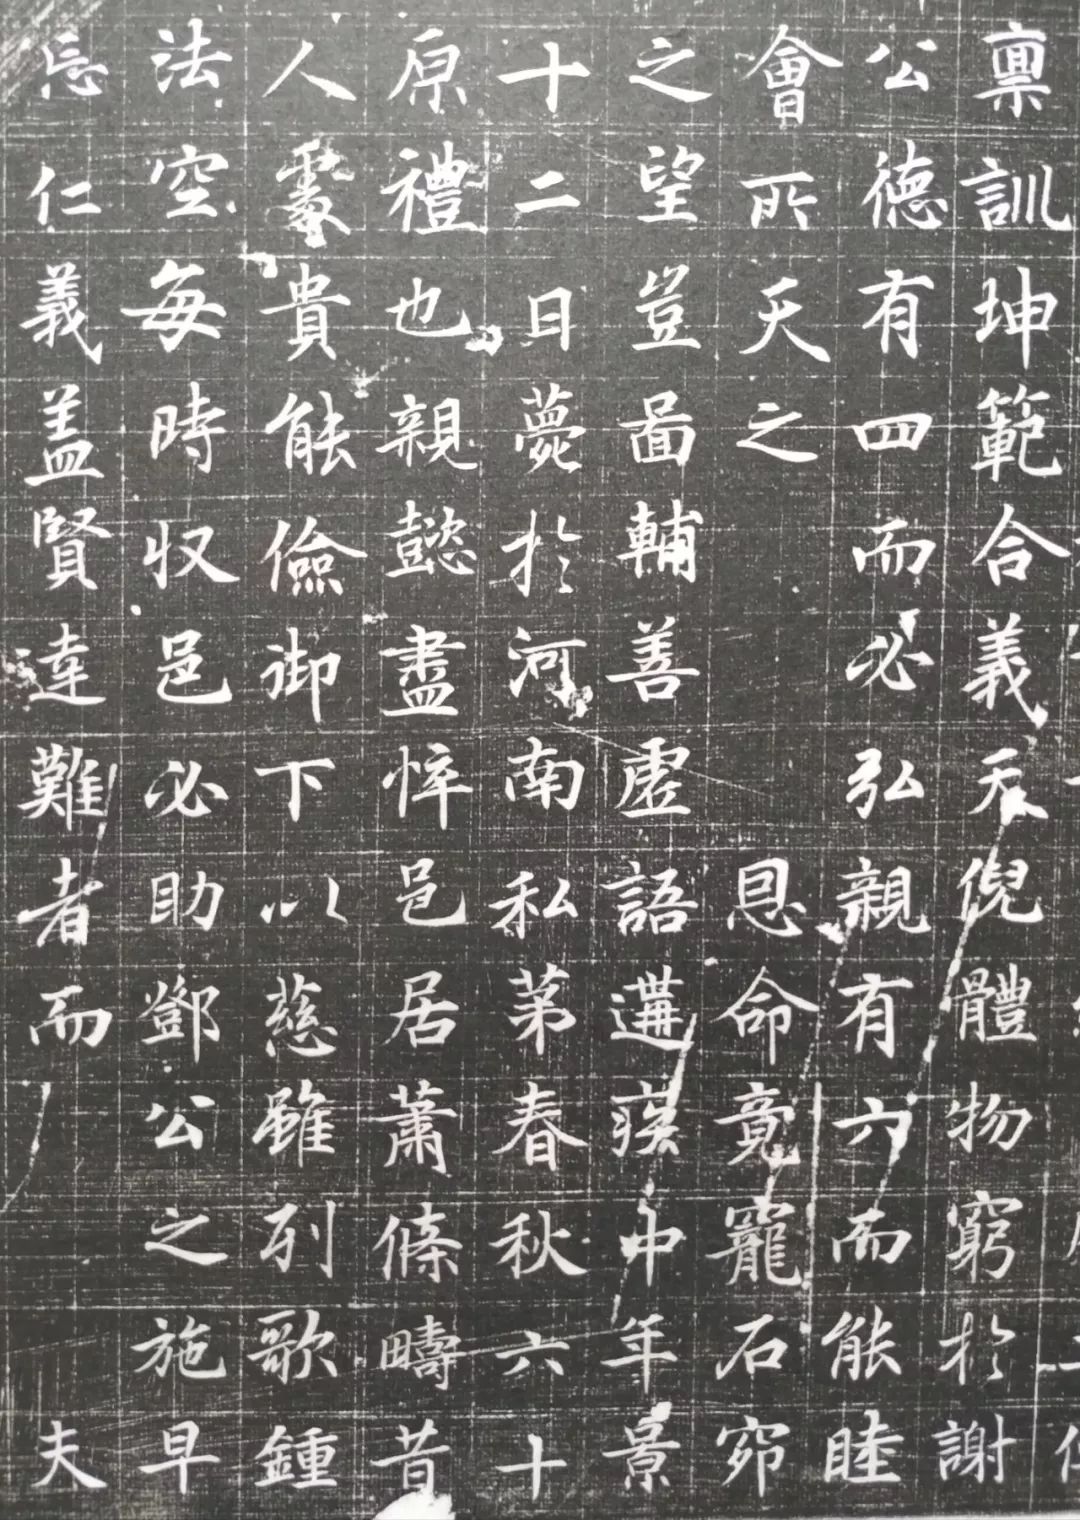 稟訓坤範合義天倪體物窮於謝
公德有四而必弘親有六而能睦
會所天之　　　恩命竟窆石窌
之望豈啚輔善虛語遘瘼中年景
十二日薨於河南私苐春秋六十
原禮也親懿盡悴邑居蕭條疇昔
人處貴能儉御下以慈雖列歌鍾
法空每時収邑必助鄧公之施早
忘仁義盖賢達難者而　　　夫